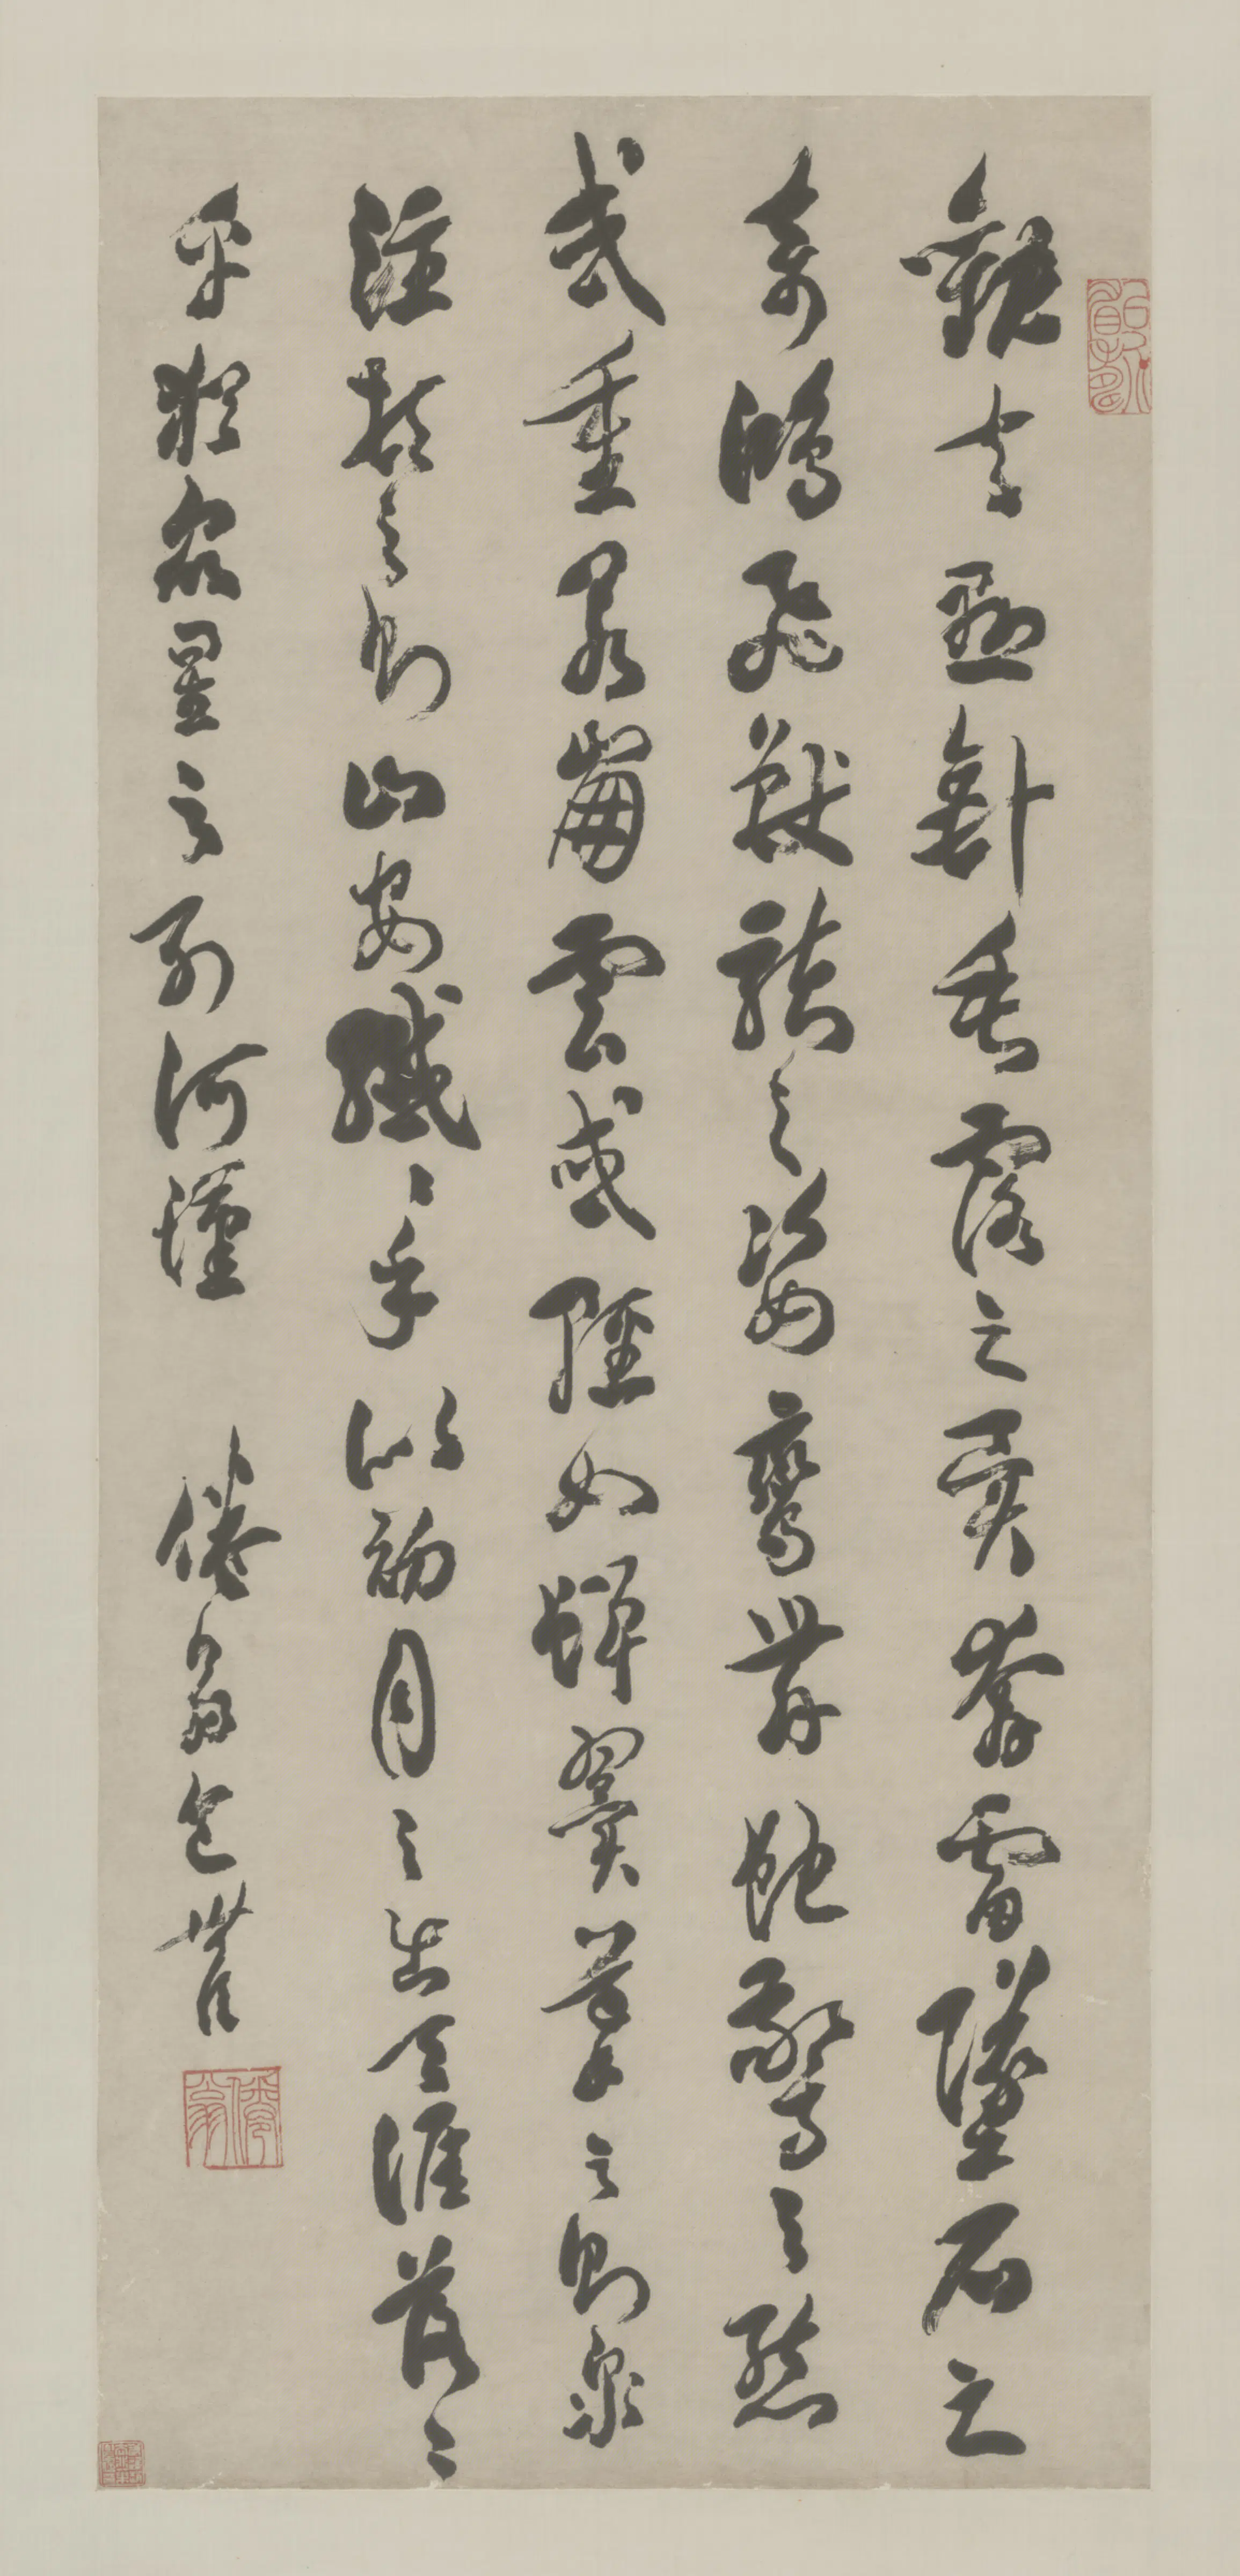 觀夫懸針垂露之異奔雷墜石之
奇鴻飛獸駭之姿鸞舞蛇驚之態
或重若崩雲或輕如蟬翼導之則泉
注頓之則山安纖〻乎似初月之出天涯落〻
乎猶眾星之列河漢 倦翁包世臣
倦翁